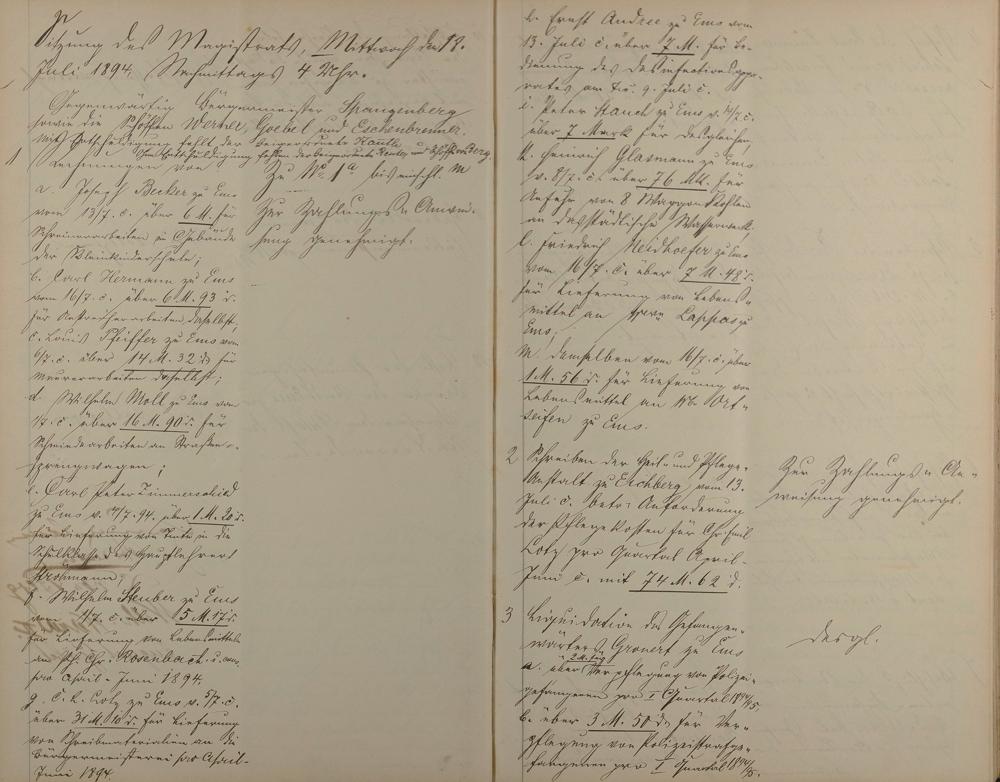 Sitzung des Magistrats, Mittwoch den 18.
Juli 1894, Nachmittags 4 Uhr.
Gegenwärtig Bürgermeister Spangenberg
sowie die Schöffen Werner, Goebel und Eschenbrenner.
Mit Entschuldigung fehlt der Beigeordnete Kauth
Ohne Entschuldigung fehlen der Beigeordnete
1 Rechnungen von
a. Joseph Becker zu Ems
vom 13/7. c. über 6 M. für
Schreinerarbeiten im Gebäude
der Kleinkinderschule;
b. Carl Hermann zu Ems
vom 16/7. c. über 6 M. 93 d.
für Anstreicherarbeiten daselbst,
c. Louis Pfeiffer zu Ems vom
6/7. c. über 14 M. 32 d. für
Maurerarbeiten daselbst;
d. Wilhelm Moll zu Ems vom
1/7. c. über 16 M. 90 d. für
Schmiedearbeiten am Straßen-
sprengwagen;
e. Carl Peter Zimmerschied
zu Ems v. 4/7. 94. über 1 M. 20 d.
für Lieferung von Tinte in die
Schulklasse des Hauptlehrers
Strohmann;
f. Wilhelm Steuber zu Ems
vom 1/7. c. über 5 M. 17 d.
für Lieferung von Lebensmitteln
an Chr. Rosenbach
pro April-Juni 1894.
g. C. L. Lotz zu Ems v. 5/7. c.
über 31 M. 10 d. für Lieferung
von Schreibmaterialien an die
Bürgermeisterei pro April-
Juni 1894.
Zu No. 1a bis einschl. M
Zur Zahlungs= Anwei-
sung genehmigt.
h. Ernst Andree zu Ems vom
13. Juli c. über 7 M. für Be-
dienung des Desinfectionsappa-
rates am 9. Juli c.
i. Peter Hauch zu Ems v. 14/7. c.
über 7 Mark für desgleichen,
k. Heinrich Glasmann zu Ems
v. 8/7. c. über 76 Mk. für
Anfuhr von 8 Waggon Kohlen
an das städtische Wasserwerk,
l. Friedrich Neidhoefer zu Ems
vom 16/7. c. über 7 M. 48 d.
für Lieferung von Lebens-
mittel an Lappas zu
Ems;
M. demselben vom 16/7. c. über
1 M. 56 d. für Lieferung von
Lebensmittel an Ww. Ort-
seifen zu Ems.
2 Schreiben der Heil- und Pflege-
Anstalt zu Eichberg vom 13.
Juli c. betr. Anforderung
der Pflegekosten für Chr. Emil
Lotz pro Quartal April-
Juni c. mit 74 M. 62 d.
Zur Zahlungs= An-
weisung genehmigt.
3 Liquidation des Gefangen-
wärters Gronert zu Ems
a. über Verpflegung von Polizei-
gefangenen pro I Quartal 1894/5.
b. über 3 M. 50 d. für Ver-
pflegung von Polizeistrafge-
fangenen pro I Quartal 1894/5.
desgl.